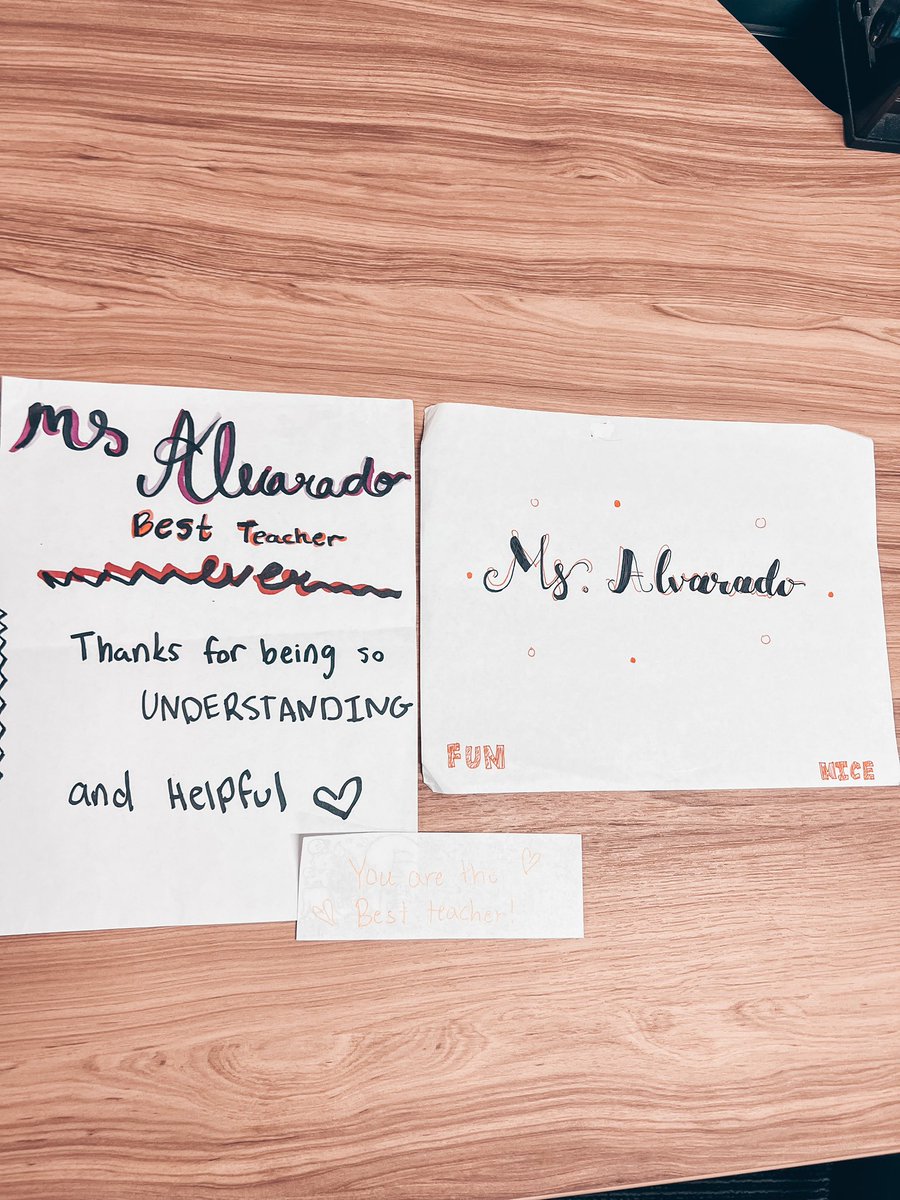 Ms
Alvarado
Best Teacher
ever
Thanks for being so
UNDERSTANDING
and Helpful
Ms. Alvarado
FUN
NICE
You are the
Best teacher!